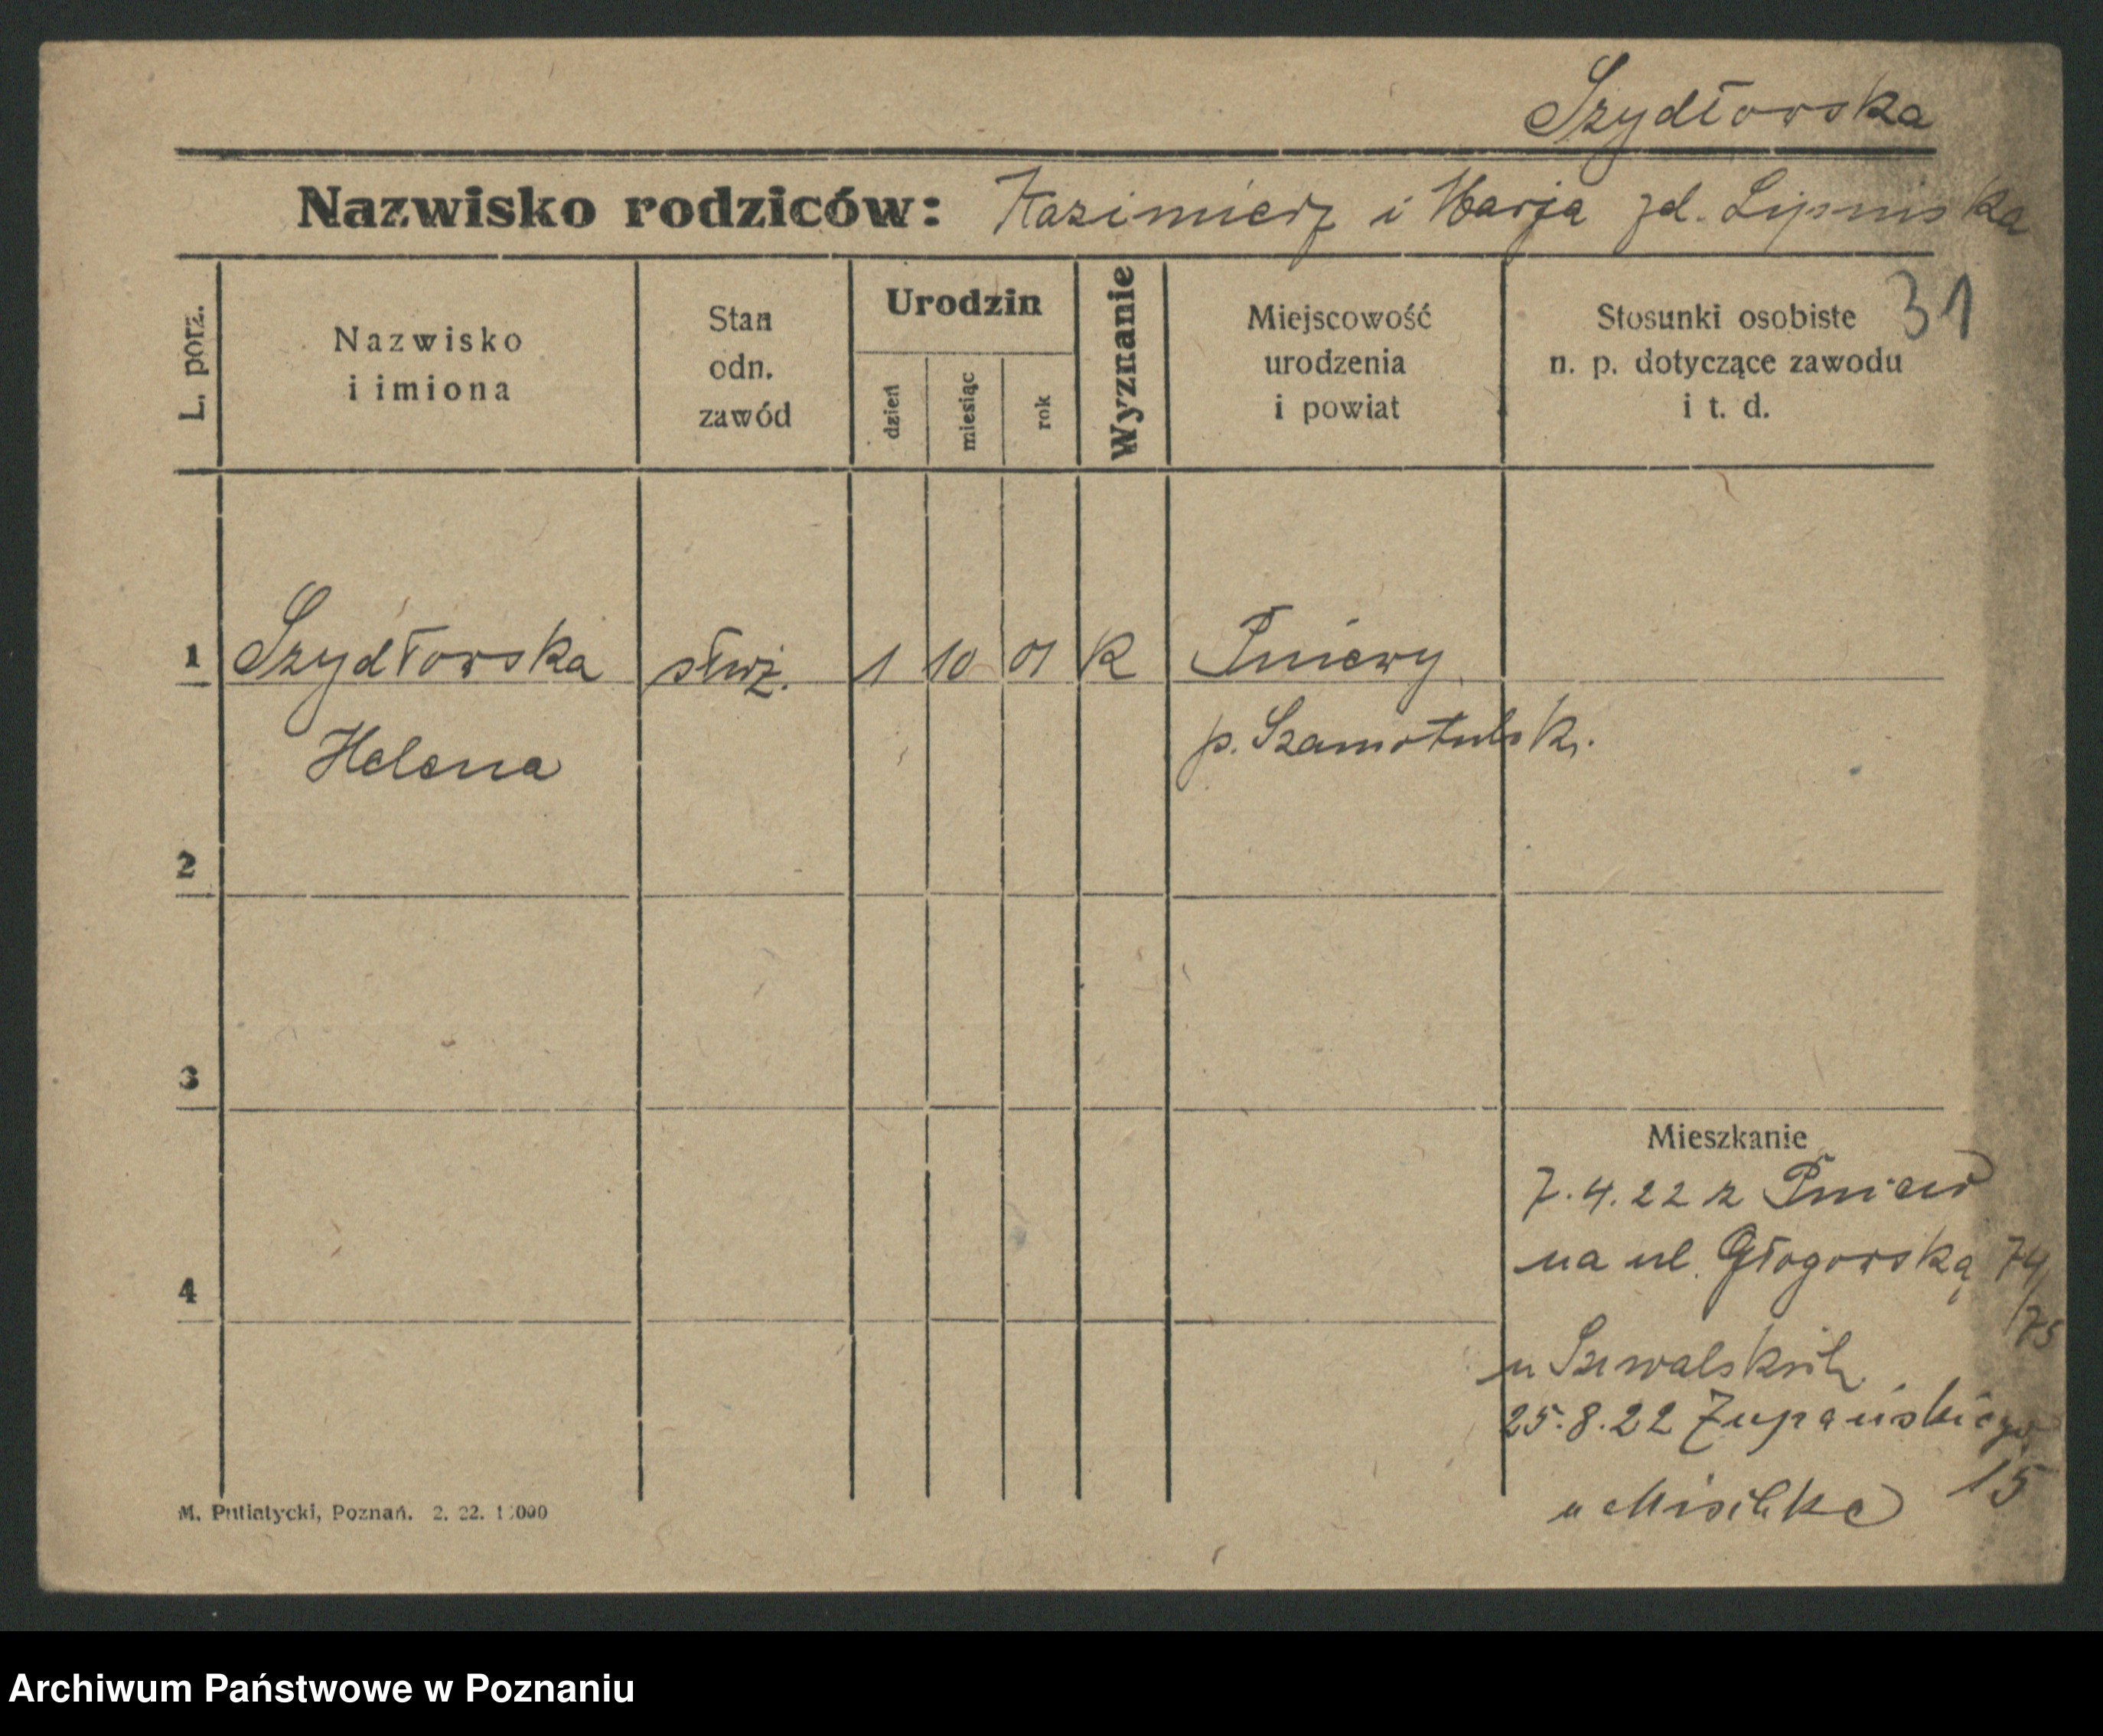 Szydłowska
Nazwisko rodziców: Kazimierz i Marja zd. Lipniska
31
L. porz.
Nazwisko
i imiona
Stan
odn.
zawód
Urodzin
dzień
miesiąc
rok
Wyznanie
Miejscowość
urodzenia
i powiat
Stosunki osobiste
n. p. dotyczące zawodu
i t. d.
1 Szydłowska służ. 1 10 01 K Pniewy
Helena p. Szamotulsk.
2
3
4
Mieszkanie
7.4.22 z Pniew
na ul. Głogowską 74/
75
u Suwalskich
25.8.22 Żupańskiego
15
u
M. Putiatycki, Poznań. 2. 22.
Archiwum Państwowe w Poznaniu